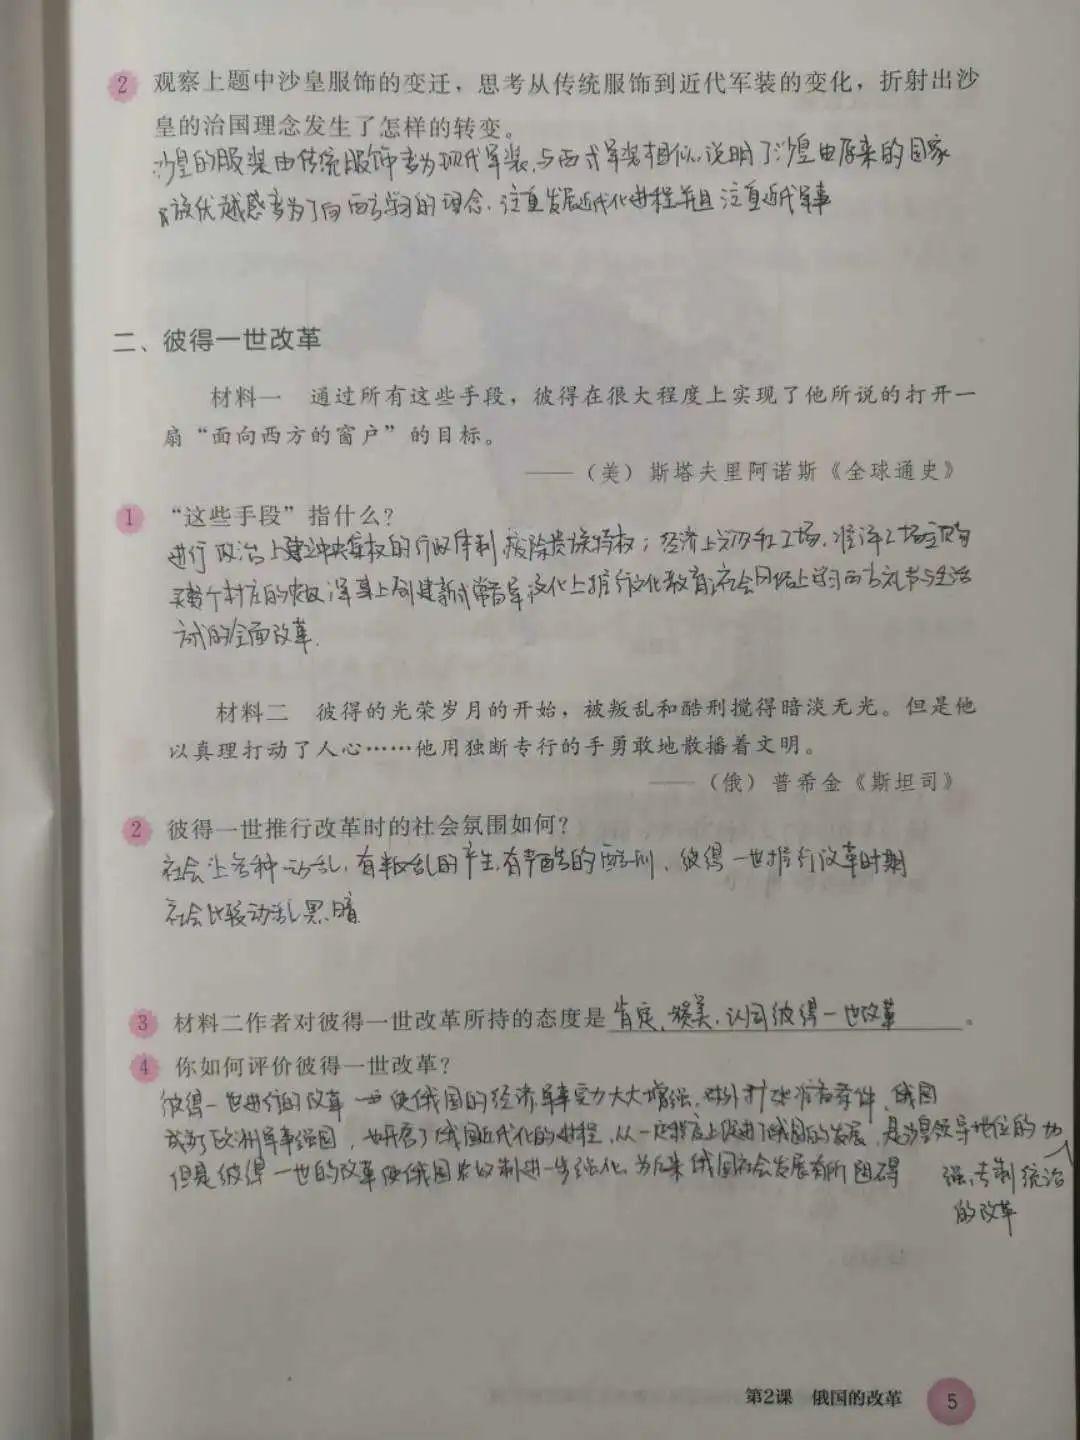 2 观察上题中沙皇服饰的变迁，思考从传统服饰到近代军装的变化，折射出沙
皇的治国理念发生了怎样的转变。
沙皇的服装由传统服饰变为现代军装，与西式军装相似，说明了沙皇由原来的国家
优越感变为了向西方学习的理念，注重发展近代化进程并且注重近代军事
二、彼得一世改革
材料一 通过所有这些手段，彼得在很大程度上实现了他所说的打开一
扇“面向西方的窗户”的目标。
——（美）斯塔夫里阿诺斯《全球通史》
1 “这些手段”指什么？
进行政治上建立中央集权的行政体制，废除贵族特权；经济上兴办手工工场，准许工场主购
买整个村庄的农奴；军事上创建新式常备军；文化上推行文化教育；社会风俗上学习西方礼节与生活
方式的全面改革．
材料二 彼得的光荣岁月的开始，被叛乱和酷刑搅得暗淡无光。但是他
以真理打动了人心……他用独断专行的手勇敢地散播着文明。
——（俄）普希金《斯坦司》
2 彼得一世推行改革时的社会氛围如何？
社会上各种动乱，有叛乱的产生，有严酷的酷刑，彼得一世推行改革时期
社会比较动乱黑暗
3 材料二作者对彼得一世改革所持的态度是 肯定、赞美、认同彼得一世改革 。
4 你如何评价彼得一世改革？
彼得一世进行的改革 使俄国的经济军事实力大大增强，对外扩张准备条件，俄国
成为了欧洲军事强国，也开启了俄国近代化的进程，从一定程度上促进了俄国的发展，是沙皇领导地位的加
但是彼得一世的改革使俄国农奴制进一步强化，为后来俄国社会发展有所阻碍 强，专制统治
的改革
第2课 俄国的改革 5